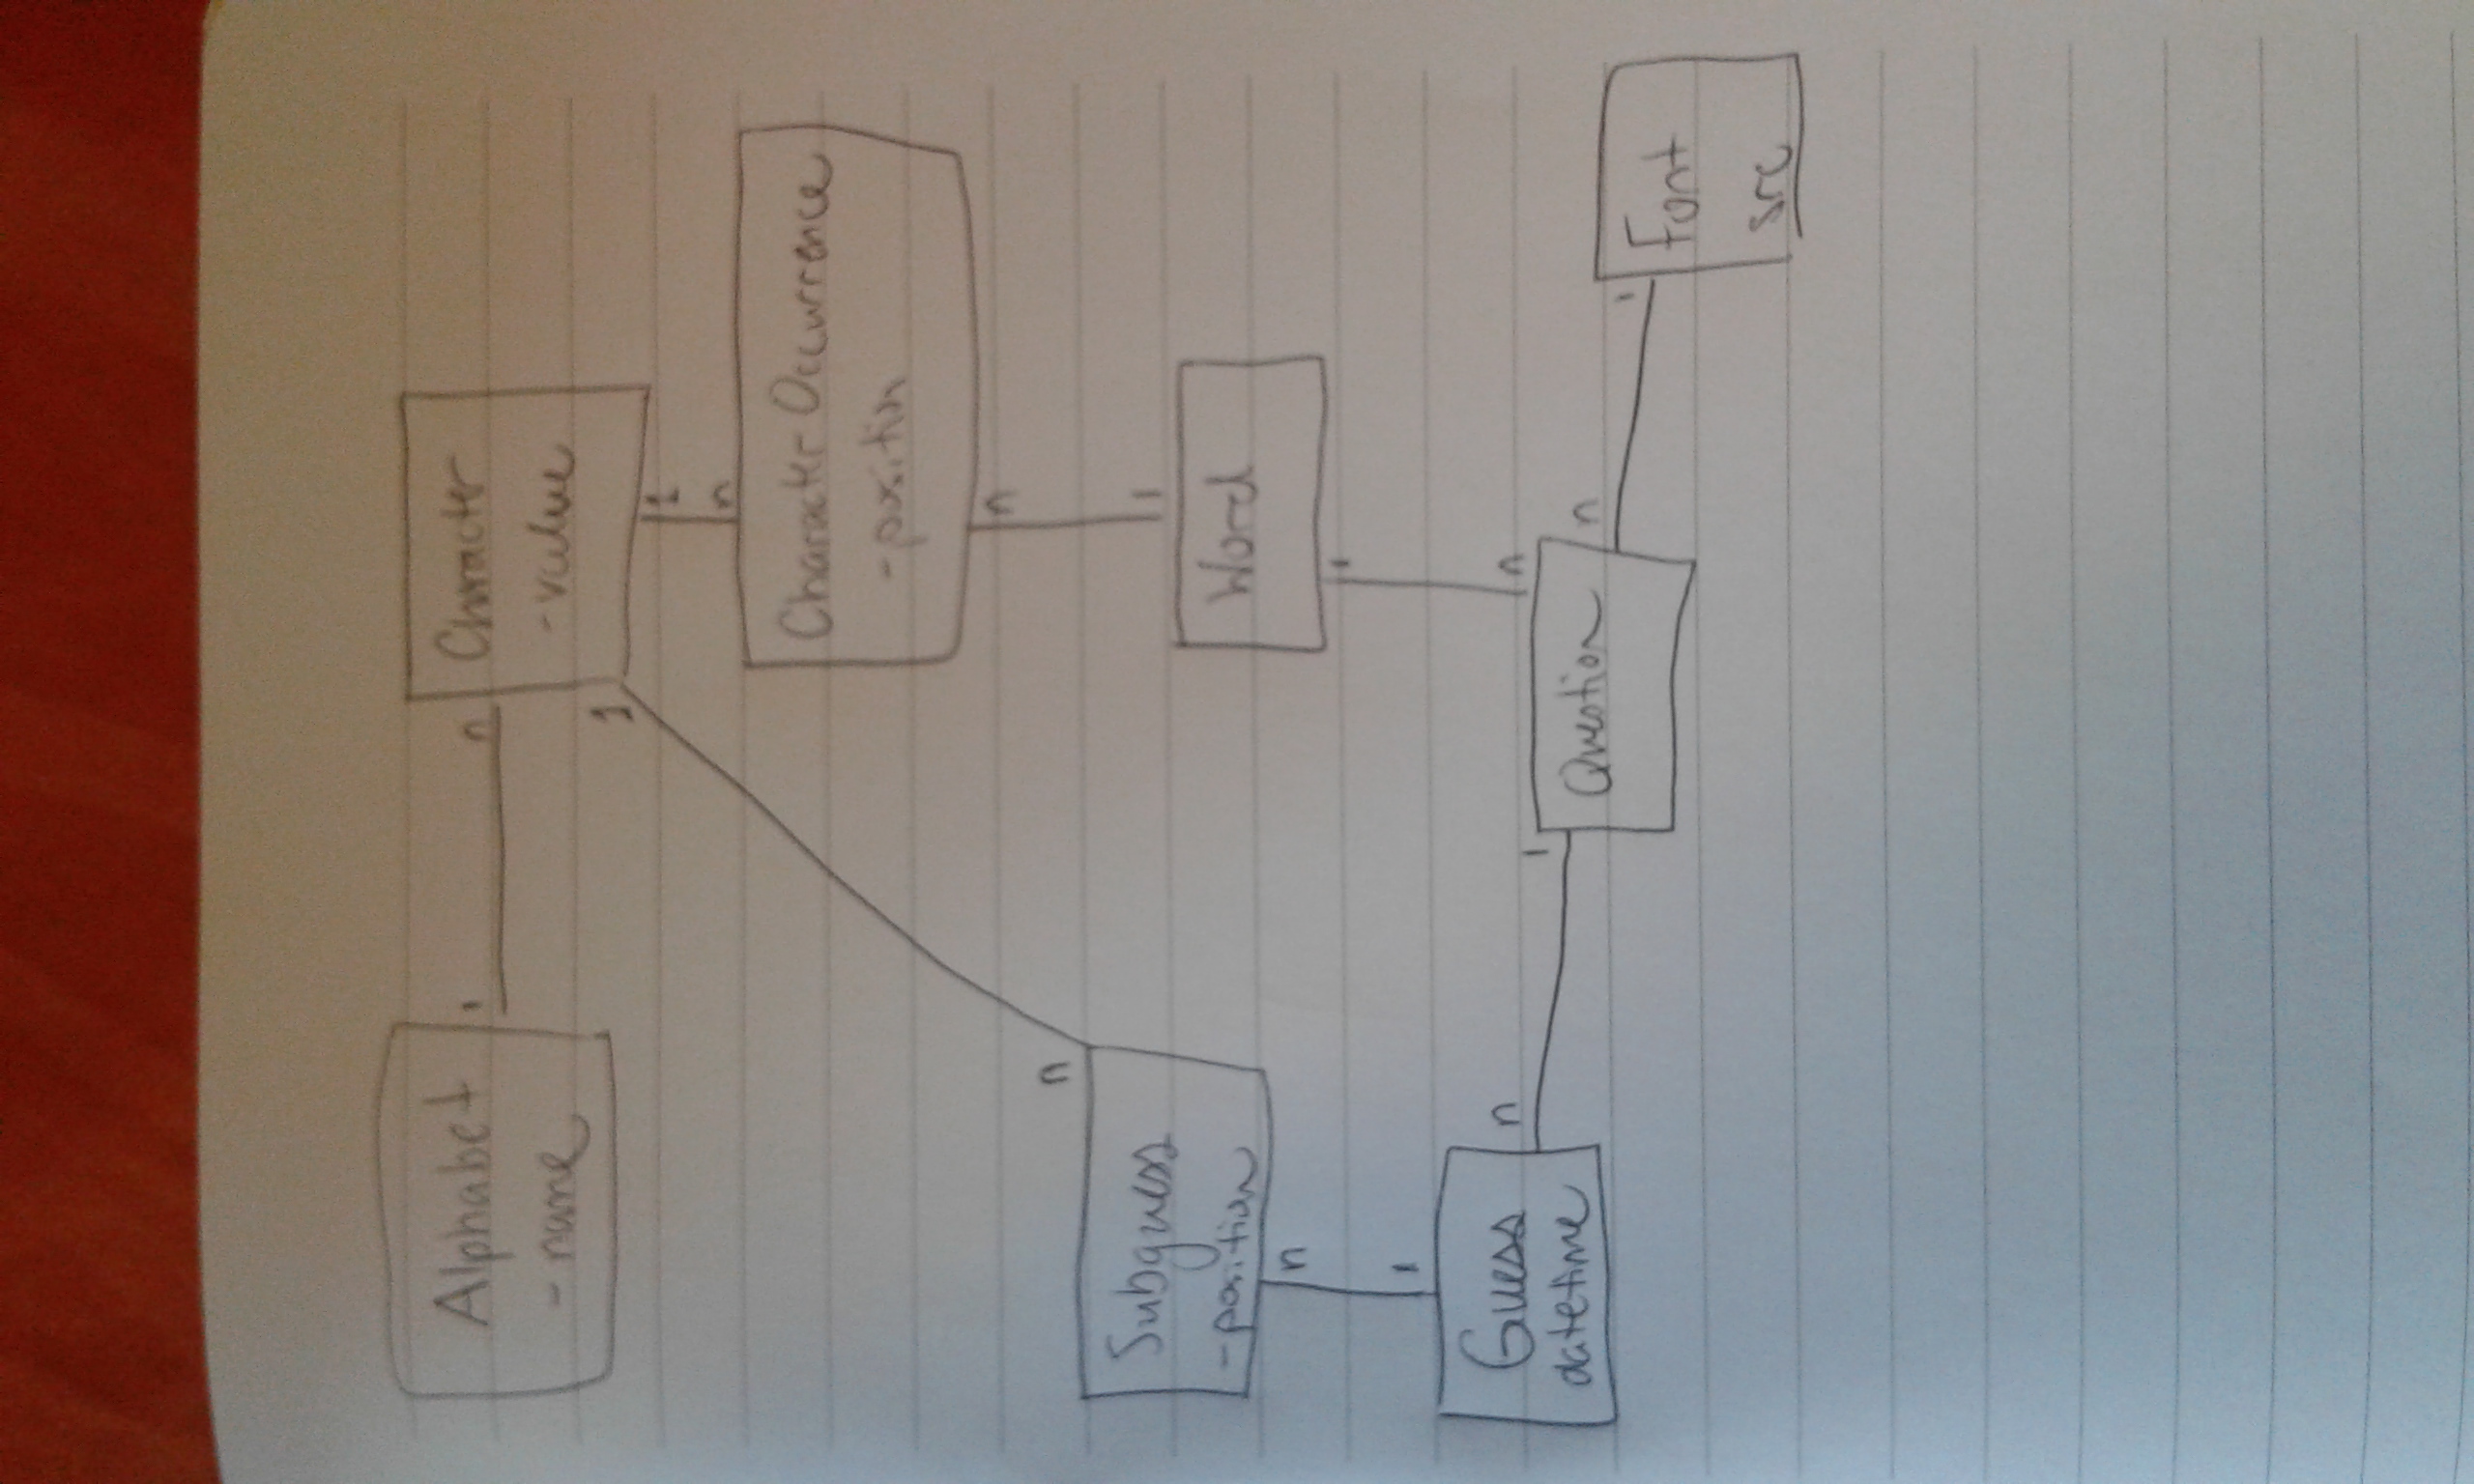 Alphabet
- name
1
n
Character
- value
1
1
n
Character Occurrence
- position
n
1
Word
1
n
n
Subguess
- position
n
1
Guess
datetime
n
1
Question
n
1
Font
src